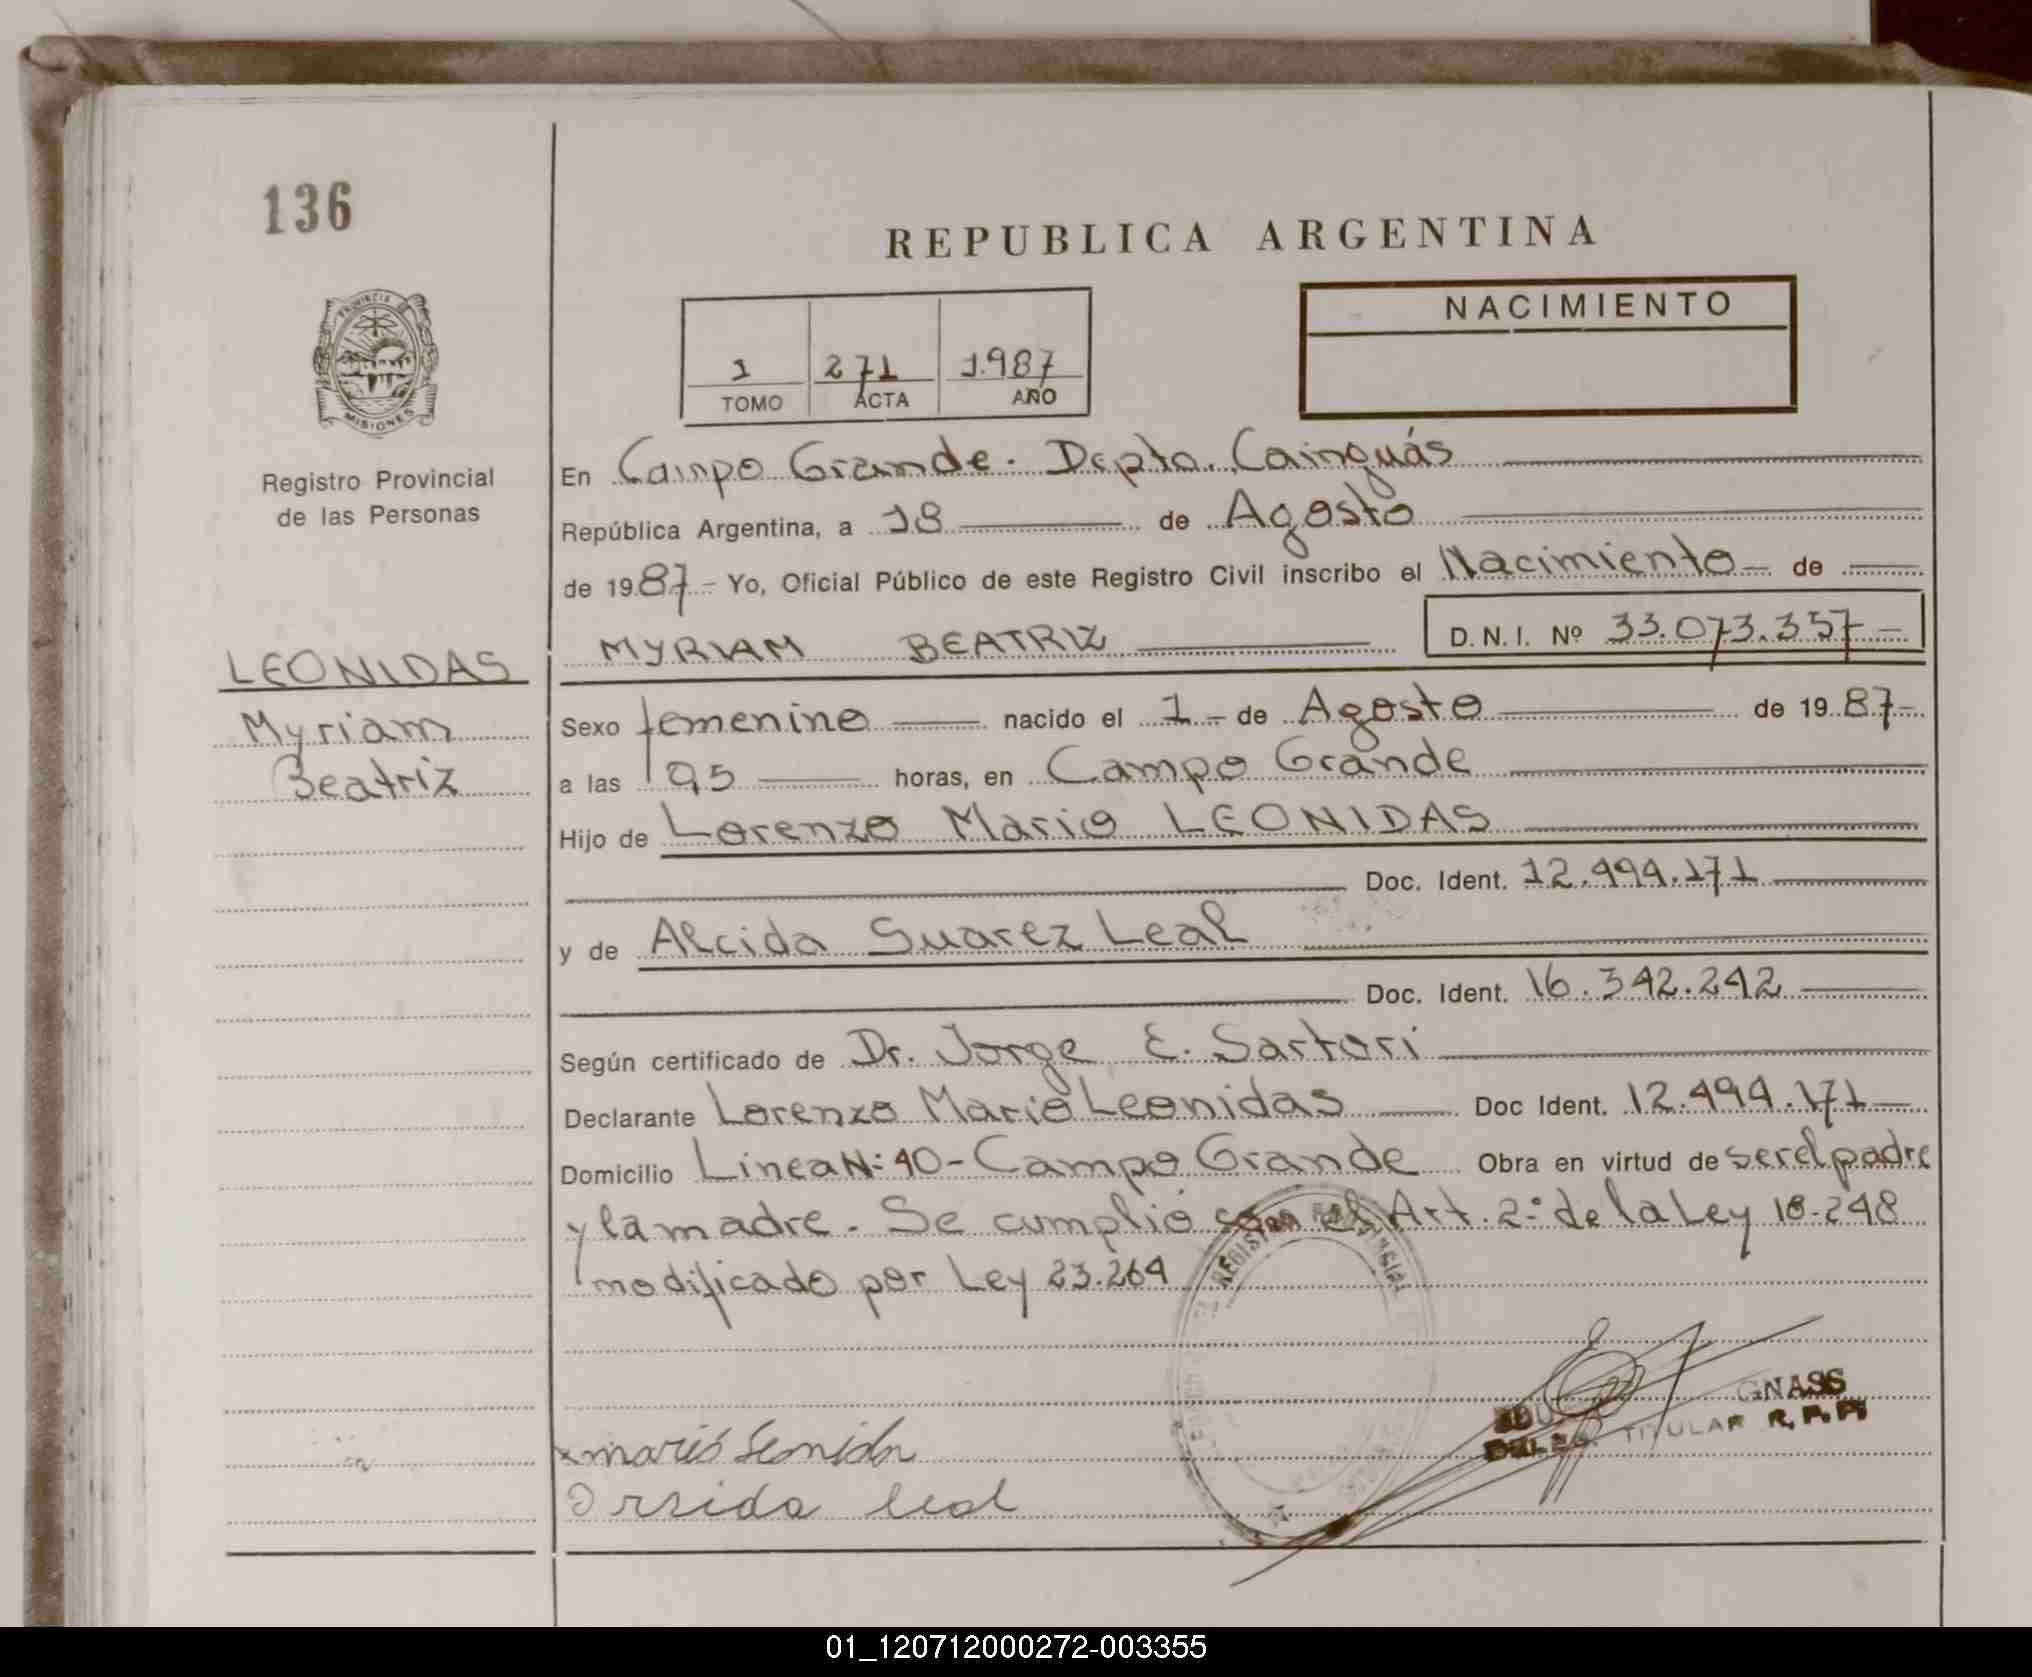 136
REPUBLICA ARGENTINA
PROVINCIA DE
MISIONES
Registro Provincial
de las Personas
1 271 1.987
TOMO ACTA AÑO
NACIMIENTO
En Campo Grande. Depto. Cainguás
República Argentina, a 18 de Agosto
de 1987- Yo, Oficial Público de este Registro Civil inscribo el Nacimiento - de
MYRIAM BEATRIZ D.N.I. Nº 33.073.357-
LEONIDAS
Myriam
Beatriz
Sexo femenino nacido el 1 - de Agosto de 1987-
a las horas, en Campo Grande
Hijo de Lorenzo Mario LEONIDAS
Doc. Ident. 12.494.171
y de Alcida Suarez Leal
Doc. Ident. 16.342.242
Según certificado de Dr. Jorge E. Sartori
Declarante Lorenzo Mario Leonidas Doc Ident. 12.494.171
Domicilio Linea N: 40 - Campo Grande Obra en virtud de ser el padre
y la madre. Se cumplió con el Art. 2º de la Ley 18.248
modificado por Ley 23.264
REGISTRO PROVINCIAL
GNASS
TITULAR R.P.P.
leal
01_120712000272-003355